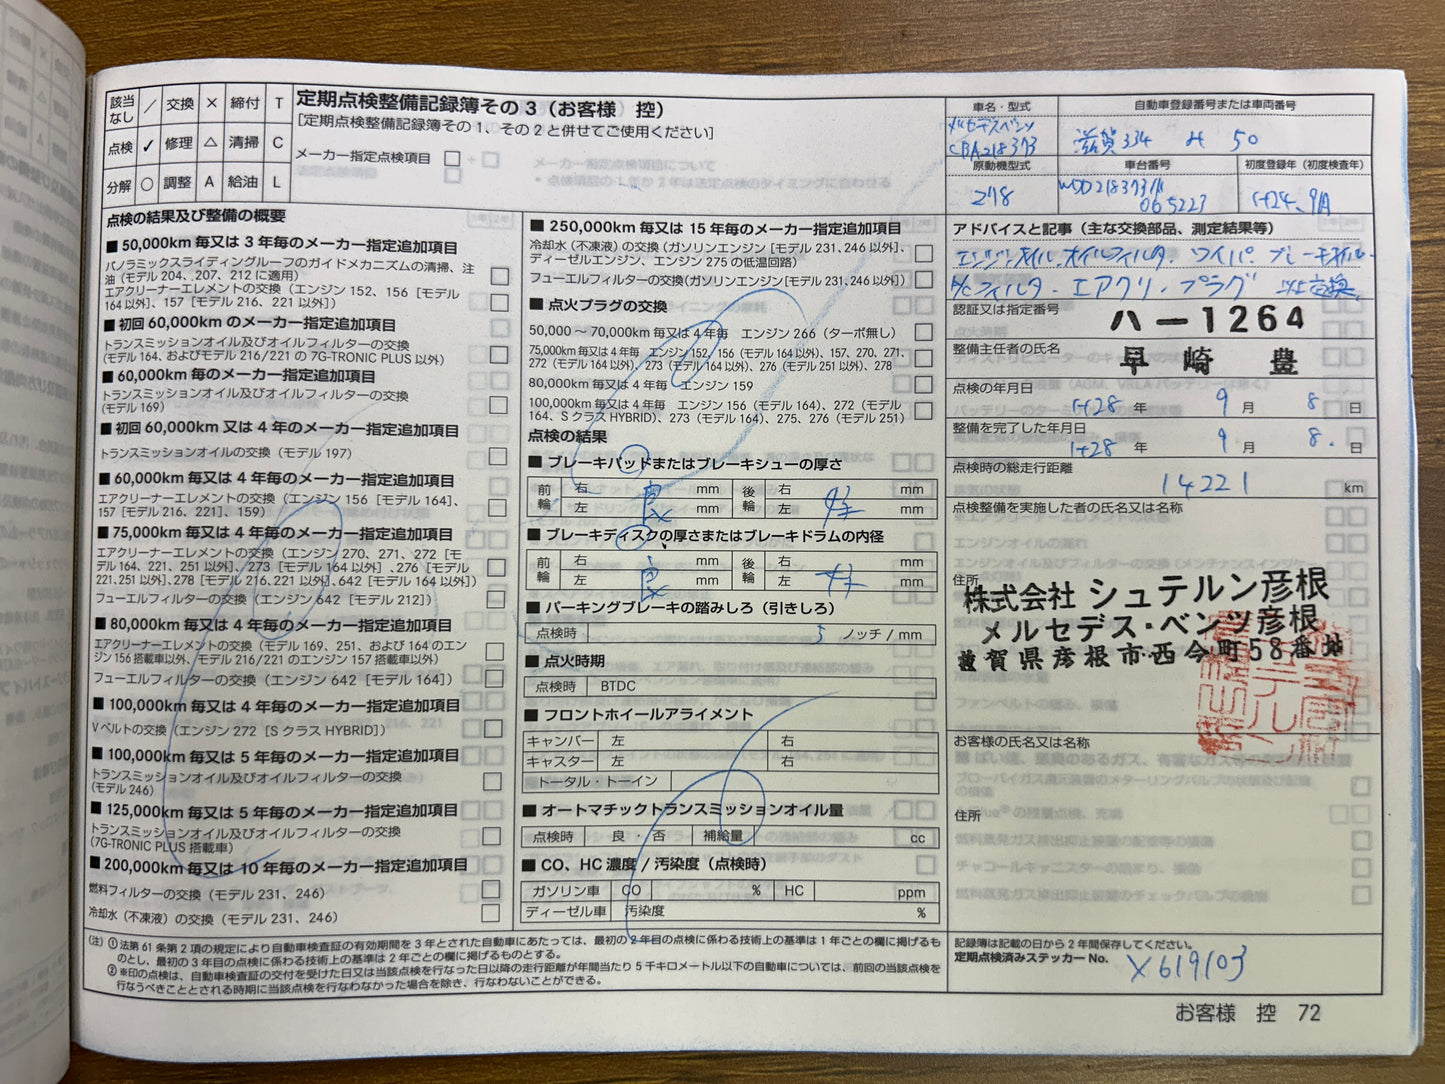 該当なし ／ 交換 × 締付 T
点検 ✓ 修理 △ 清掃 C
分解 ○ 調整 A 給油 L
定期点検整備記録簿その3（お客様　控）
［定期点検整備記録簿その1、その2と併せてご使用ください］
メーカー指定点検項目 □
車名・型式
メルセデスベンツ
CBA218373
自動車登録番号または車両番号
滋賀334 み 50
原動機型式
278
車台番号
WDD2183731A
065223
初度登録年（初度検査年）
H24.9月
点検の結果及び整備の概要
■ 50,000km 毎又は 3 年毎のメーカー指定追加項目
パノラミックスライディングルーフのガイドメカニズムの清掃、注
油（モデル 204、207、212 に適用） □
エアクリーナーエレメントの交換（エンジン 152、156［モデル
164 以外］、157［モデル 216、221 以外］） □
■ 初回 60,000km のメーカー指定追加項目
トランスミッションオイル及びオイルフィルターの交換
（モデル 164、およびモデル 216/221 の 7G-TRONIC PLUS 以外） □
■ 60,000km 毎のメーカー指定追加項目
トランスミッションオイル及びオイルフィルターの交換
（モデル 169） □
■ 初回 60,000km 又は 4 年毎のメーカー指定追加項目
トランスミッションオイルの交換（モデル 197） □
■ 60,000km 毎又は 4 年毎のメーカー指定追加項目
エアクリーナーエレメントの交換（エンジン 156［モデル 164］、
157［モデル 216、221］、159） □
■ 75,000km 毎又は 4 年毎のメーカー指定追加項目
エアクリーナーエレメントの交換（エンジン 270、271、272［モ
デル 164、221、251 以外］、273［モデル 164 以外］、276［モデル
221、251 以外］、278［モデル 216、221 以外］、642［モデル 164 以外］） □
フューエルフィルターの交換（エンジン 642［モデル 212］） □
■ 80,000km 毎又は 4 年毎のメーカー指定追加項目
エアクリーナーエレメントの交換（モデル 169、251、および 164 のエン
ジン 156 搭載車以外、モデル 216/221 のエンジン 157 搭載車以外） □
フューエルフィルターの交換（エンジン 642［モデル 164］） □
■ 100,000km 毎又は 4 年毎のメーカー指定追加項目
V ベルトの交換（エンジン 272［S クラス HYBRID］） □
■ 100,000km 毎又は 5 年毎のメーカー指定追加項目
トランスミッションオイル及びオイルフィルターの交換
（モデル 246） □
■ 125,000km 毎又は 5 年毎のメーカー指定追加項目
トランスミッションオイル及びオイルフィルターの交換
（7G-TRONIC PLUS 搭載車） □
■ 200,000km 毎又は 10 年毎のメーカー指定追加項目
燃料フィルターの交換（モデル 231、246） □
冷却水（不凍液）の交換（モデル 231、246） □
■ 250,000km 毎又は 15 年毎のメーカー指定追加項目
冷却水（不凍液）の交換（ガソリンエンジン［モデル 231、246 以外］、
ディーゼルエンジン、エンジン 275 の低温回路） □
フューエルフィルターの交換（ガソリンエンジン［モデル 231、246 以外］） □
■ 点火プラグの交換
50,000～70,000km 毎又は 4 年毎　エンジン 266（ターボ無し） □
75,000km 毎又は 4 年毎　エンジン 152、156（モデル 164 以外）、157、270、271、
272（モデル 164 以外）、273（モデル 164 以外）、276（モデル 251 以外）、278 □
80,000km 毎又は 4 年毎　エンジン 159 □
100,000km 毎又は 4 年毎　エンジン 156（モデル 164）、272（モデル
164、S クラス HYBRID）、273（モデル 164）、275、276（モデル 251） □
点検の結果
■ ブレーキパッドまたはブレーキシューの厚さ
前輪 右 良 mm 後輪 右 好 mm
左 mm 左 mm
■ ブレーキディスクの厚さまたはブレーキドラムの内径
前輪 右 良 mm 後輪 右 好 mm
左 mm 左 mm
■ パーキングブレーキの踏みしろ（引きしろ）
点検時 5 ノッチ / mm
■ 点火時期
点検時 BTDC
■ フロントホイールアライメント
キャンバー 左 右
キャスター 左 右
トータル・トーイン
■ オートマチックトランスミッションオイル量
点検時 良・否 補給量 cc
■ CO、HC 濃度 / 汚染度（点検時）
ガソリン車 CO % HC ppm
ディーゼル車 汚染度 %
アドバイスと記事（主な交換部品、測定結果等）
エンジンオイル・オイルフィルタ・ワイパ・ブレーキオイル・
A/Cフィルタ・エアクリ・プラグ 以上交換
認証又は指定番号
ハー1264
整備主任者の氏名
早崎　豊
点検の年月日
H28 年 9 月 8 日
整備を完了した年月日
H28 年 9 月 8 日
点検時の総走行距離
14221 km
点検整備を実施した者の氏名又は名称
住所
株式会社 シュテルン彦根
メルセデス・ベンツ彦根
滋賀県彦根市西今町58番地
お客様の氏名又は名称
住所
（注）① 法第 61 条第 2 項の規定により自動車検査証の有効期間を 3 年とされた自動車にあたっては、最初の 2 年目の点検に係わる技術上の基準は 1 年ごとの欄に掲げるも
のとし、最初の 3 年目の点検に係わる技術上の基準は 2 年ごとの欄に掲げるものとする。
② ※印の点検は、自動車検査証の交付を受けた日又は当該点検を行なった日以降の走行距離が年間当たり 5 千キロメートル以下の自動車については、前回の当該点検を
行なうべきこととされる時期に当該点検を行なわなかった場合を除き、行なわないことができる。
記録簿は記載の日から 2 年間保存してください。
定期点検済みステッカー No. X619103
お客様　控　72